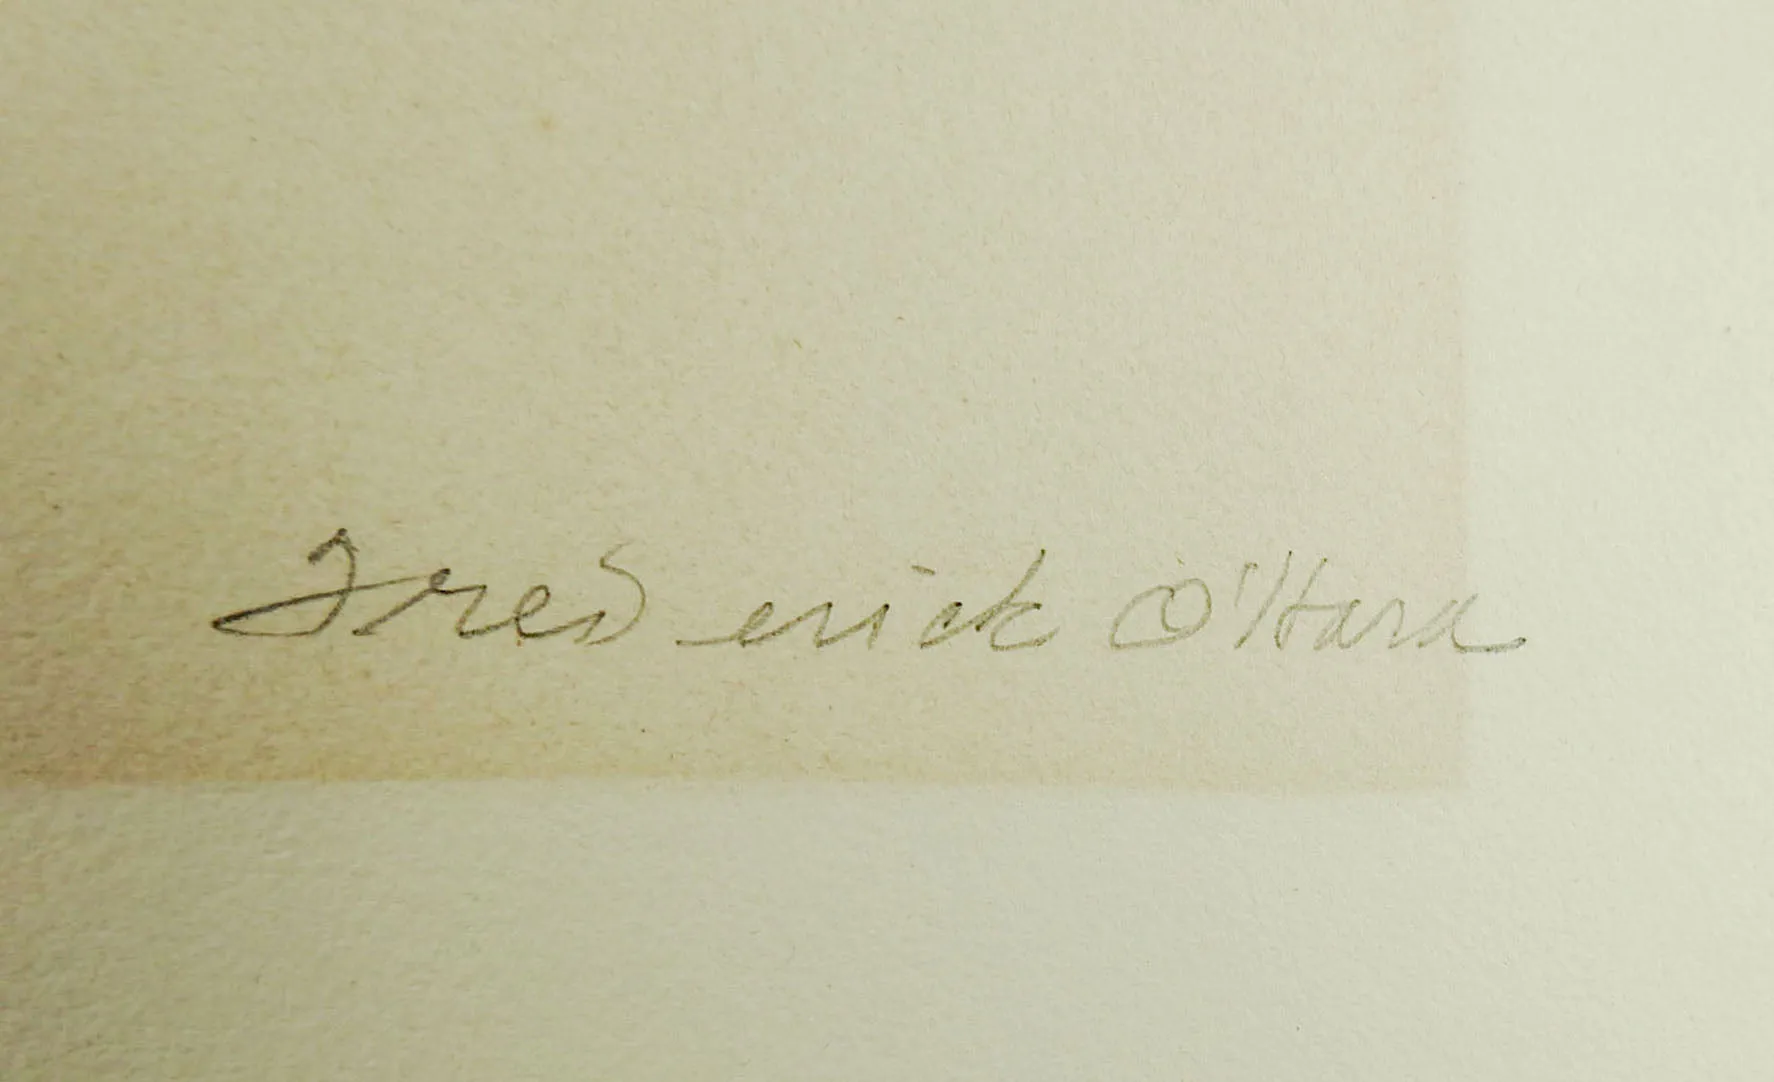 Frederick O'Hara